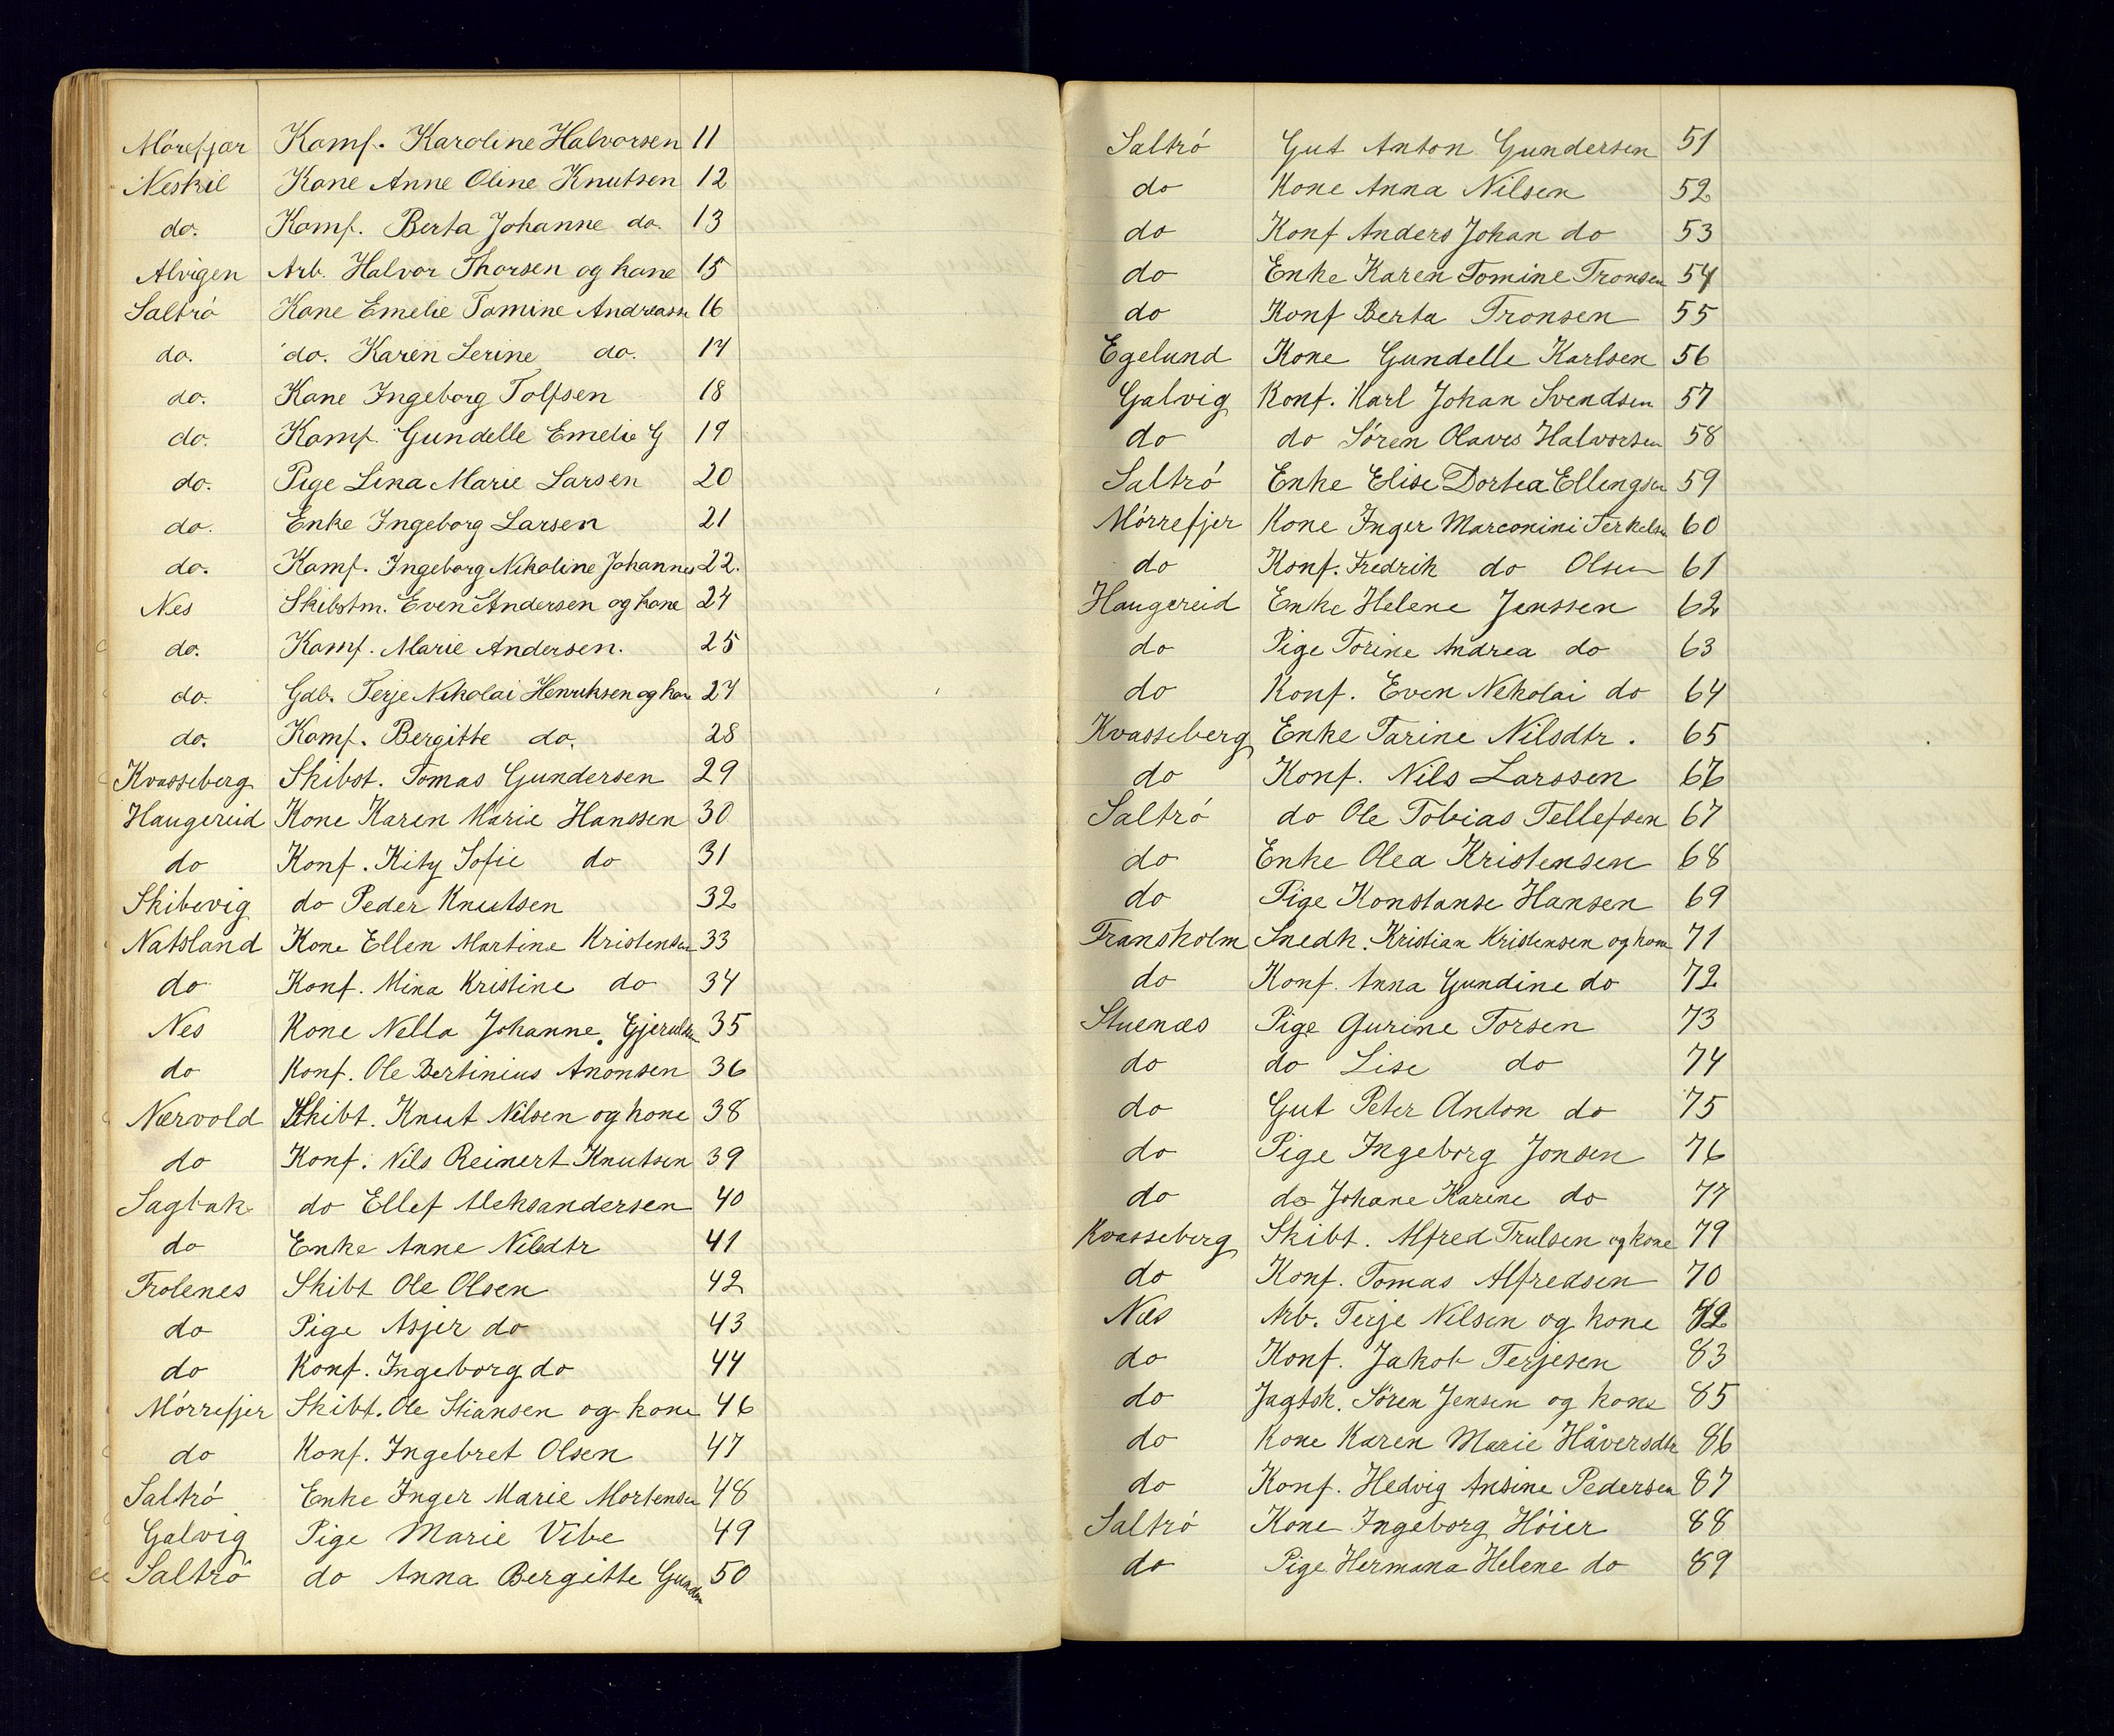 Mórefjær Komf. Karoline Halvorsen 11
Neskil Kone Anne Oline Knutsen 12
do. Komf. Berta Johanne do. 13
Alvigen Arb. Halvor Thorsen og kone 15
Saltró Kone Emelie Tomine Andreass 16
do. do. Karen Serine do. 17
do. Kone Ingeborg Tolfsen 18
do. Komf. Gundelle Emelie G 19
do. Pige Lina Marie Larsen 20
do. Enke Ingeborg Larsen 21
do. Komf. Ingeborg Nikoline Johannes 22.
Nes Skibstm. Even Andersen og kone 24
do. Komf. Marie Andersen. 25
do. Gdb. Terje Nikolai Henriksen og kone 27
do. Komf. Bergitte do. 28
Kvasseberg Skibst. Tomas Gundersen 29
Haugereid Kone Karen Marie Hanssen 30
do Konf. Kity Sofie do 31
Skibevig do Peder Knutsen 32
Natsland Kone Ellen Martine Kristensen 33
do Konf. Mina Kristine do 34
Nes Kone Nella Johanne. Gjeruldsen 35
do Konf. Ole Bertinius Anonsen 36
Nærvold Skibt. Knut Nilsen og kone 38
do Konf. Nils Reinert Knutsen 39
Sagbak do Ellef Aleksandersen 40
do Enke Anne Nilsdtr 41
Frolenes Skibt Ole Olsen 42
do Pige Asjer do 43
do Konf. Ingeborg do 44
Mórrefjer Skibt. Ole Stiansen og kone 46
do Konf. Ingebret Olsen 47
Saltró Enke Inger Marie Mortensen 48
Galvig Pige Marie Vibe 49
Saltró do Anna Bergitte Gundersen 50
Saltró Gut Anton Gundersen 51
do Kone Anna Nilsen 52
do Konf Anders Johan do 53
do Enke Karen Tomine Tronsen 54
do Konf Berta Tronsen 55
Egelund Kone Gundelle Karlsen 56
Galvig Konf. Karl Johan Svendsen 57
do do Sóren Olaves Halvorsen 58
Saltró Enke Elise Dortea Ellingsen 59
Mórrefjer Kone Inger Marconini Terkelsen 60
do Konf. Fredrik do Olsen 61
Haugereid Enke Helene Jenssen 62
do Pige Torine Andrea do 63
do Konf. Even Nikolai do 64
Kvasseberg Enke Tarine Nilsdtr. 65
do Konf. Nils Larssen 66
Saltró do Ole Tobias Tellefsen 67
do Enke Olea Kristensen 68
do Pige Konstanse Hansen 69
Fransholm Snedk. Kristian Kristensen og kone 71
do Konf. Anna Gundine do 72
Stuenæs Pige Gurine Torsen 73
do do Lise do 74
do Gut Peter Anton do 75
do Pige Ingeborg Jonsen 76
do do Johane Karine do 77
Kvasseberg Skibt. Alfred Trulsen og kone 79
do Konf. Tomas Alfredsen 70
Næs Arb. Terje Nilsen og kone 82
do Konf. Jakob Terjesen 83
do Jagtsk. Sóren Jensen og kone 85
do Kone Karen Marie Håversdtr 86
do Konf. Hedvig Ansine Pedersen 87
Saltró Kone Ingeborg Hóier 88
do Pige Hermana Helene do 89